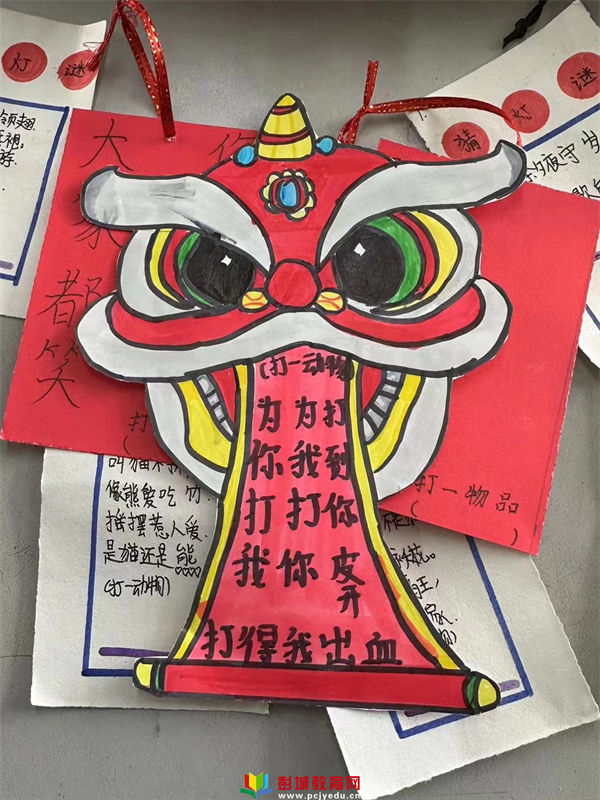 灯谜
大家都笑
你
打
猜灯谜
夜守
(打一动物)
为你打我
为我打你
打到你皮开
打得我出血
叫猫不
像熊爱吃竹
摇摆惹人爱.
是猫还是熊
(打一动物)
打一物品
( )
王,
彭城教育网
www.pcjyedu.com